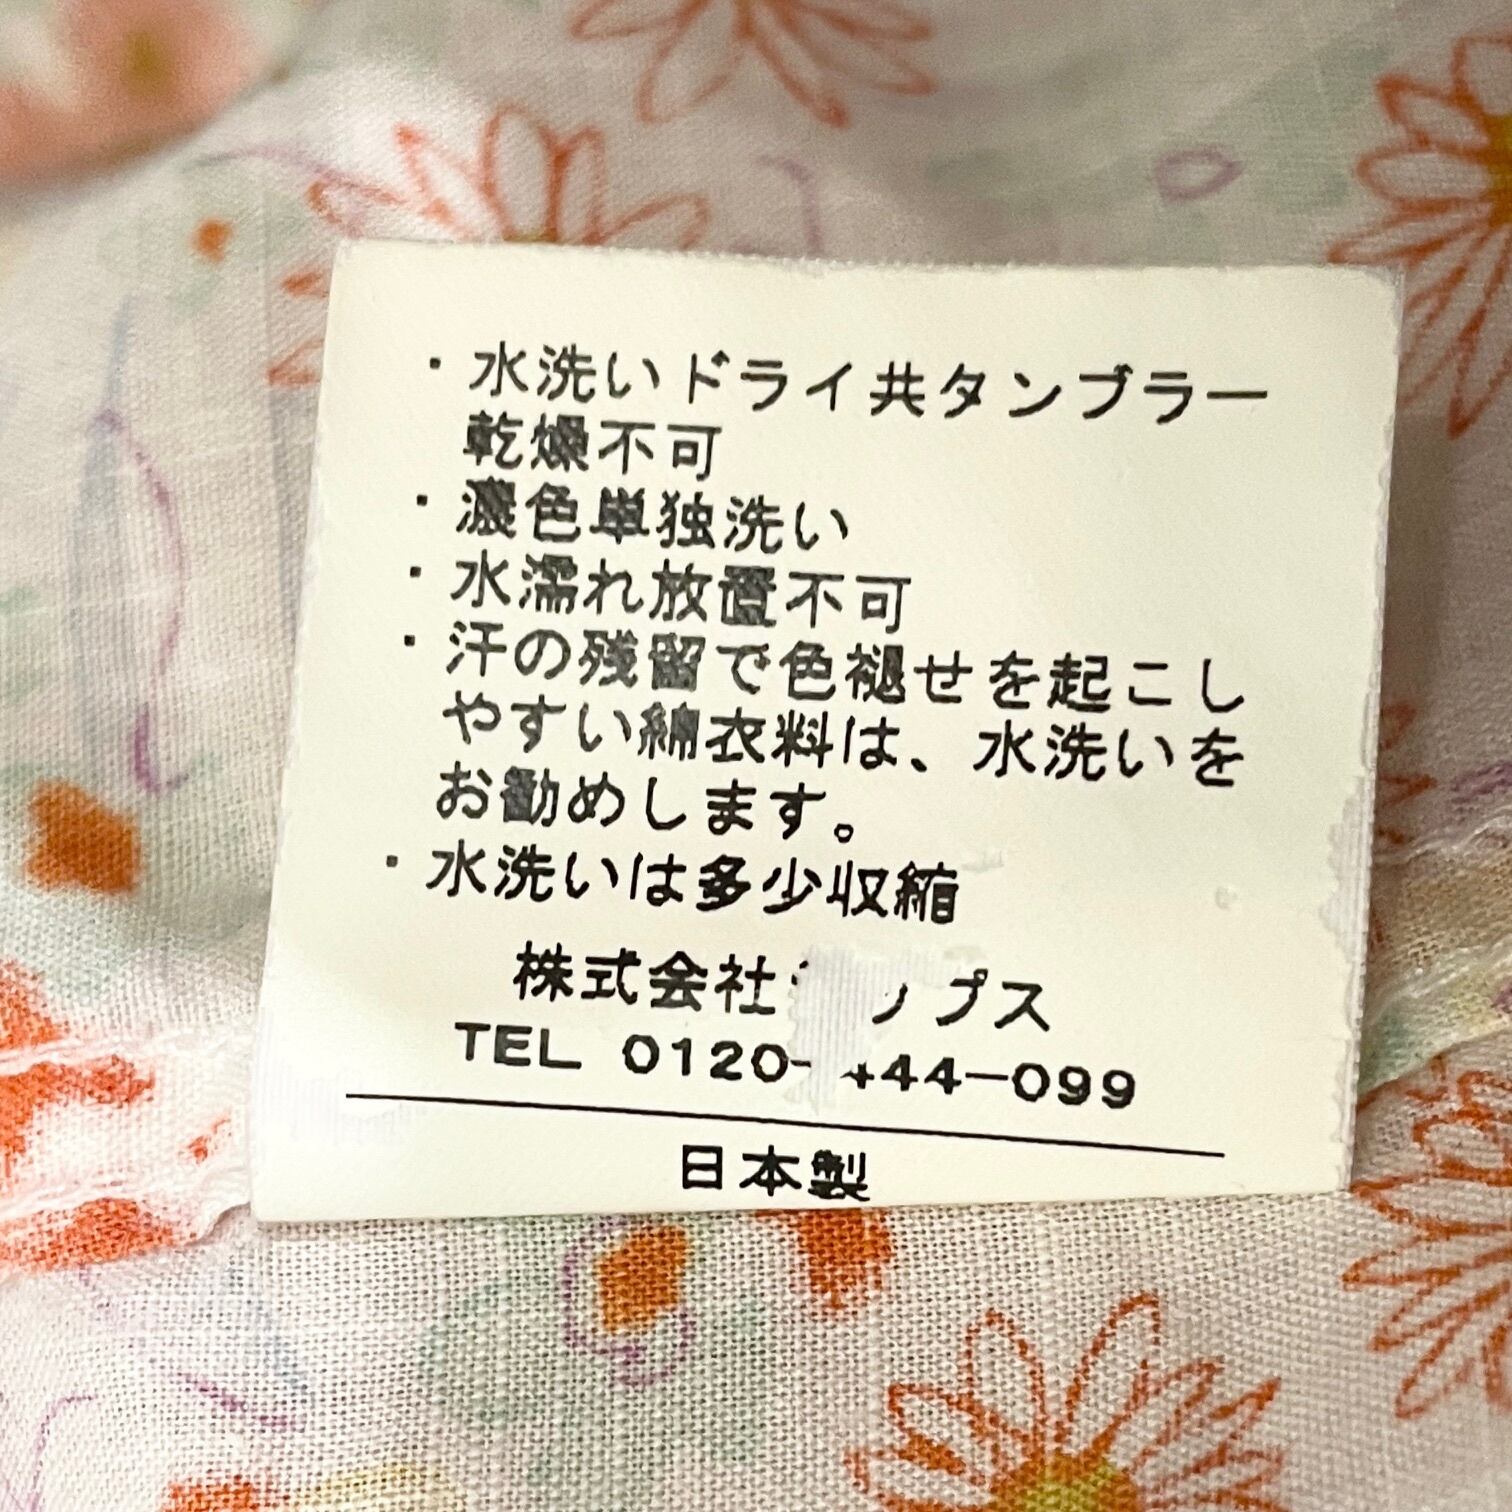 ・水洗いドライ共タンブラー
乾燥不可
・濃色単独洗い
・水濡れ放置不可
・汗の残留で色褪せを起こし
やすい綿衣料は、水洗いを
お勧めします。
・水洗いは多少収縮
株式会社
TEL 0120- 44-099
日本製